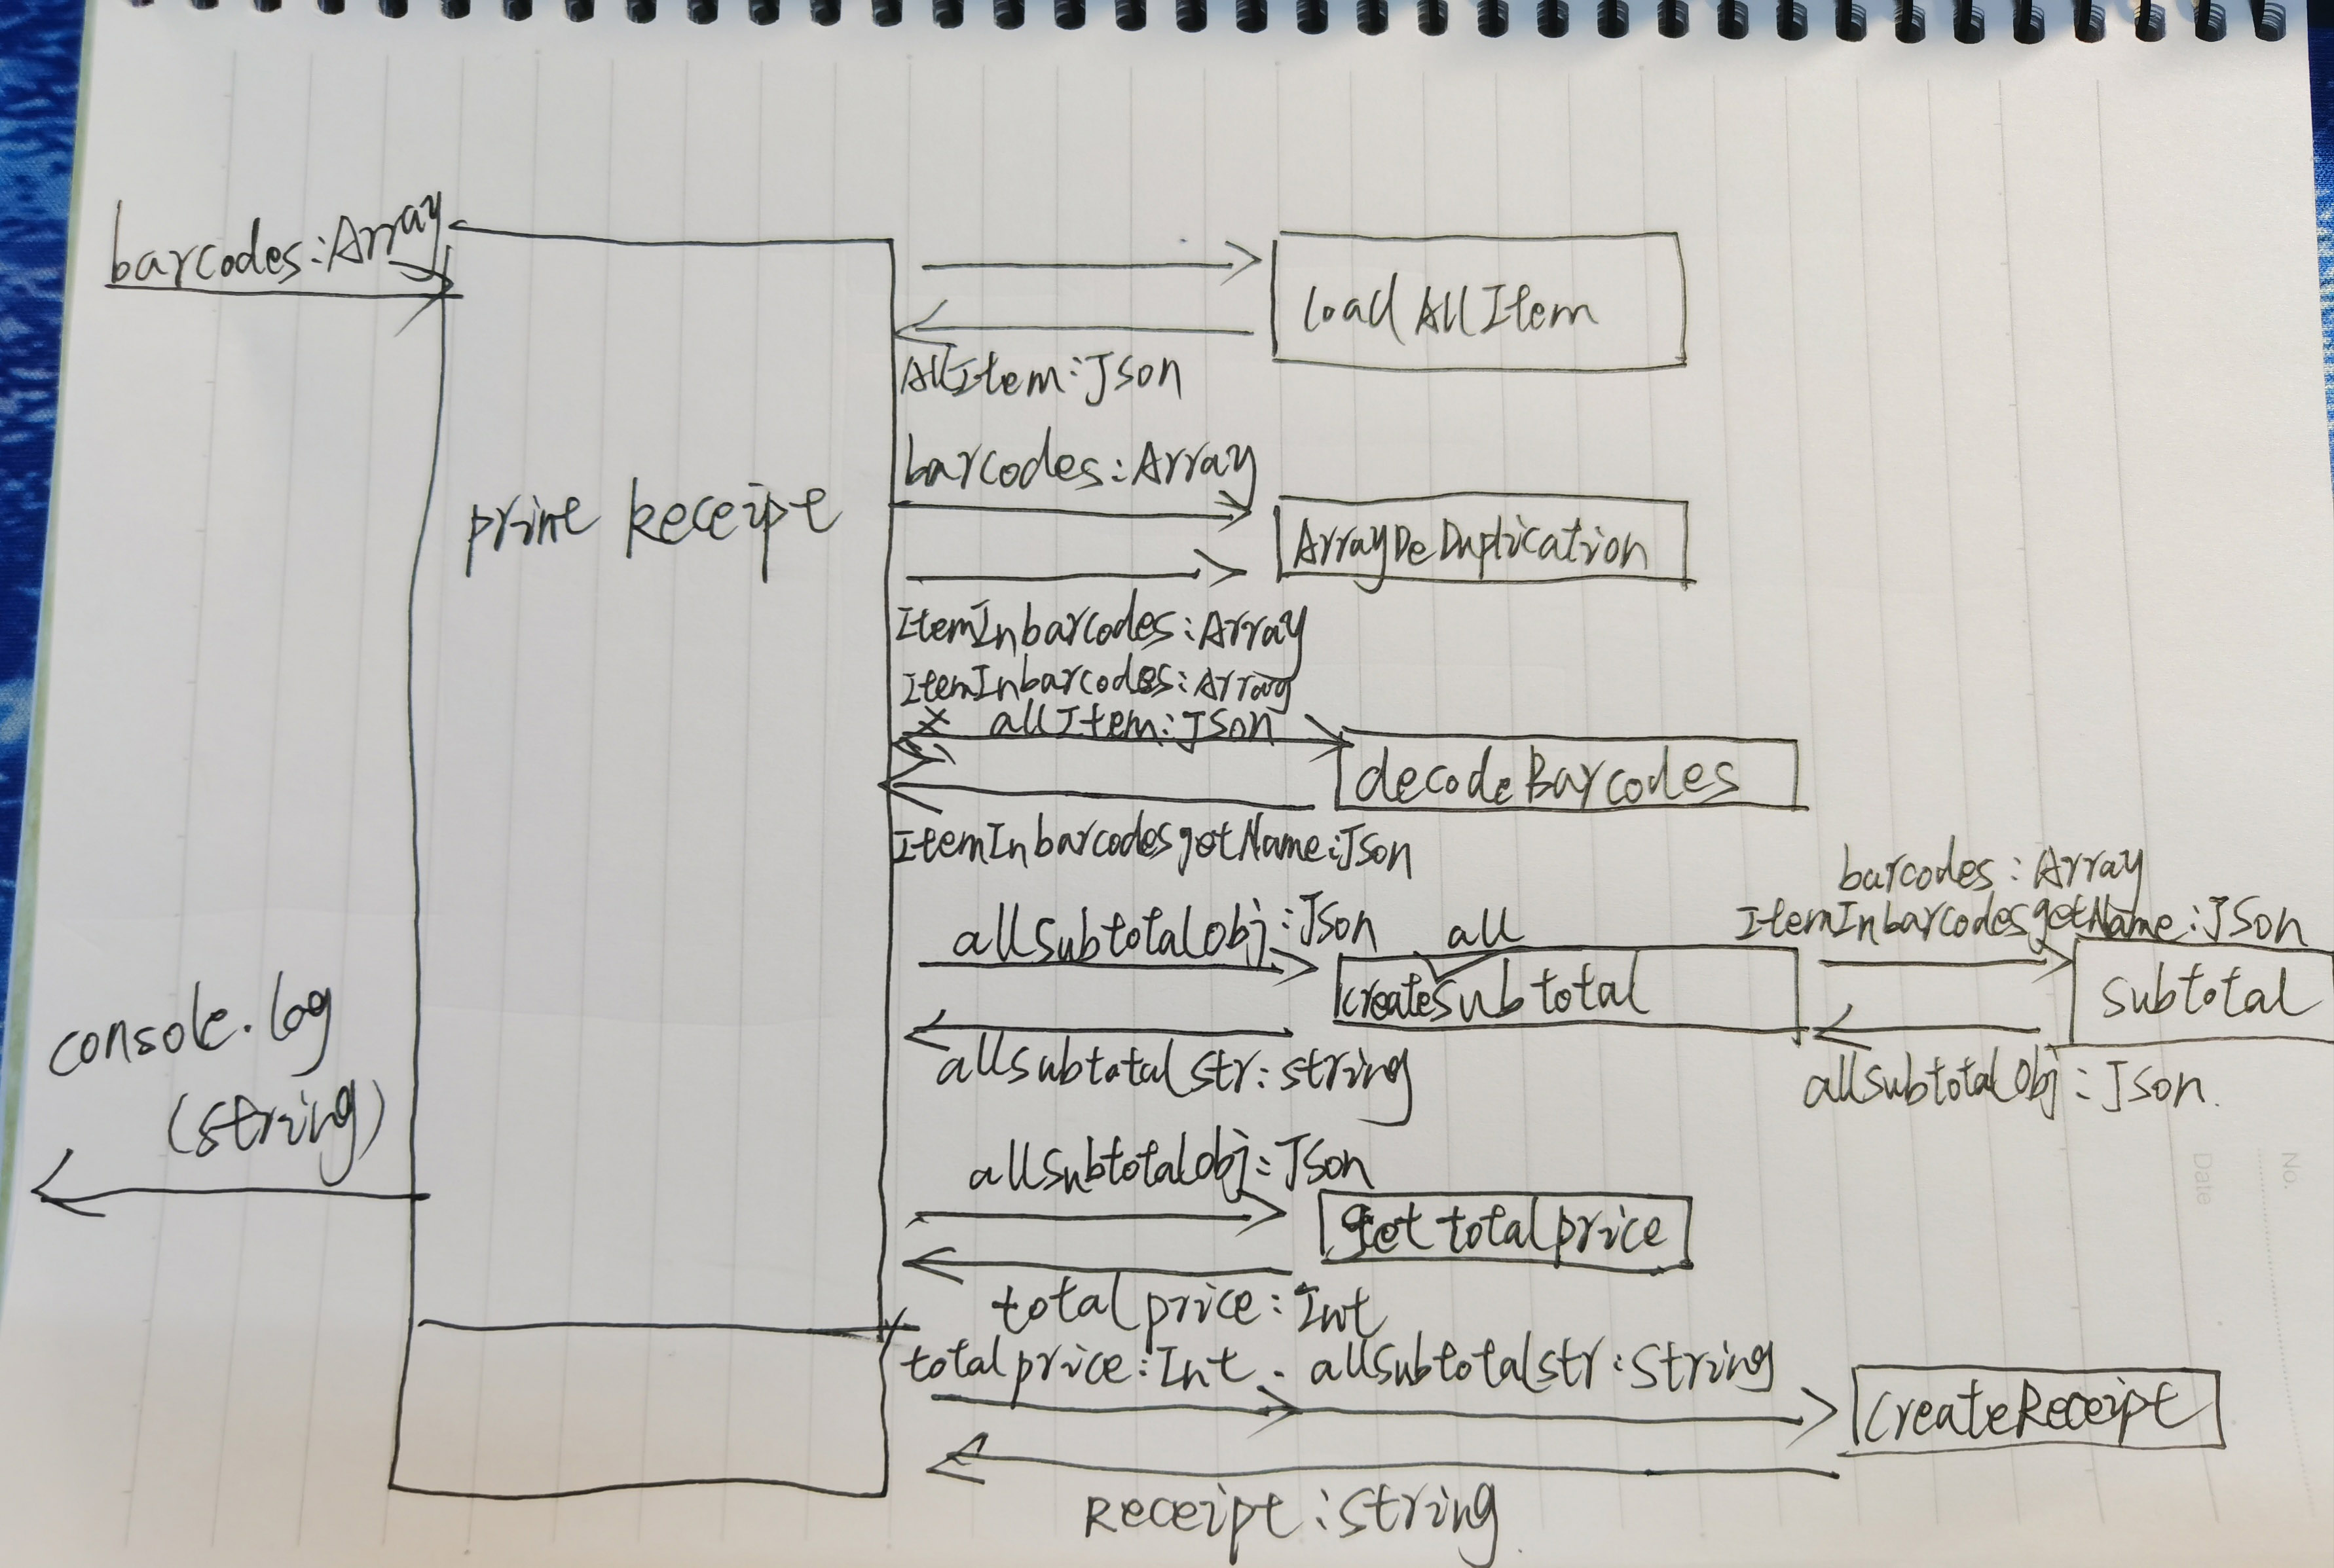 barcodes:Array
print Receipt
console.log
(string)
loadAllItem
AllItem:Json
barcodes:Array
ArrayDeDuplication
ItemInbarcodes:Array
ItemInbarcodes:Array
allItem:Json
decodeBarcodes
ItemInbarcodesgetName:Json
allSubtotalObj:Json
all
createSubtotal
allsubtotalstr:string
barcodes:Array
ItemInbarcodesgetName:Json
subtotal
allsubtotalObj:Json.
allsubtotalobj:Json
gettotalprice
totalprice:Int
totalprice:Int. allsubtotalstr:String
CreateReceipt
Receipt:string
No.
Date